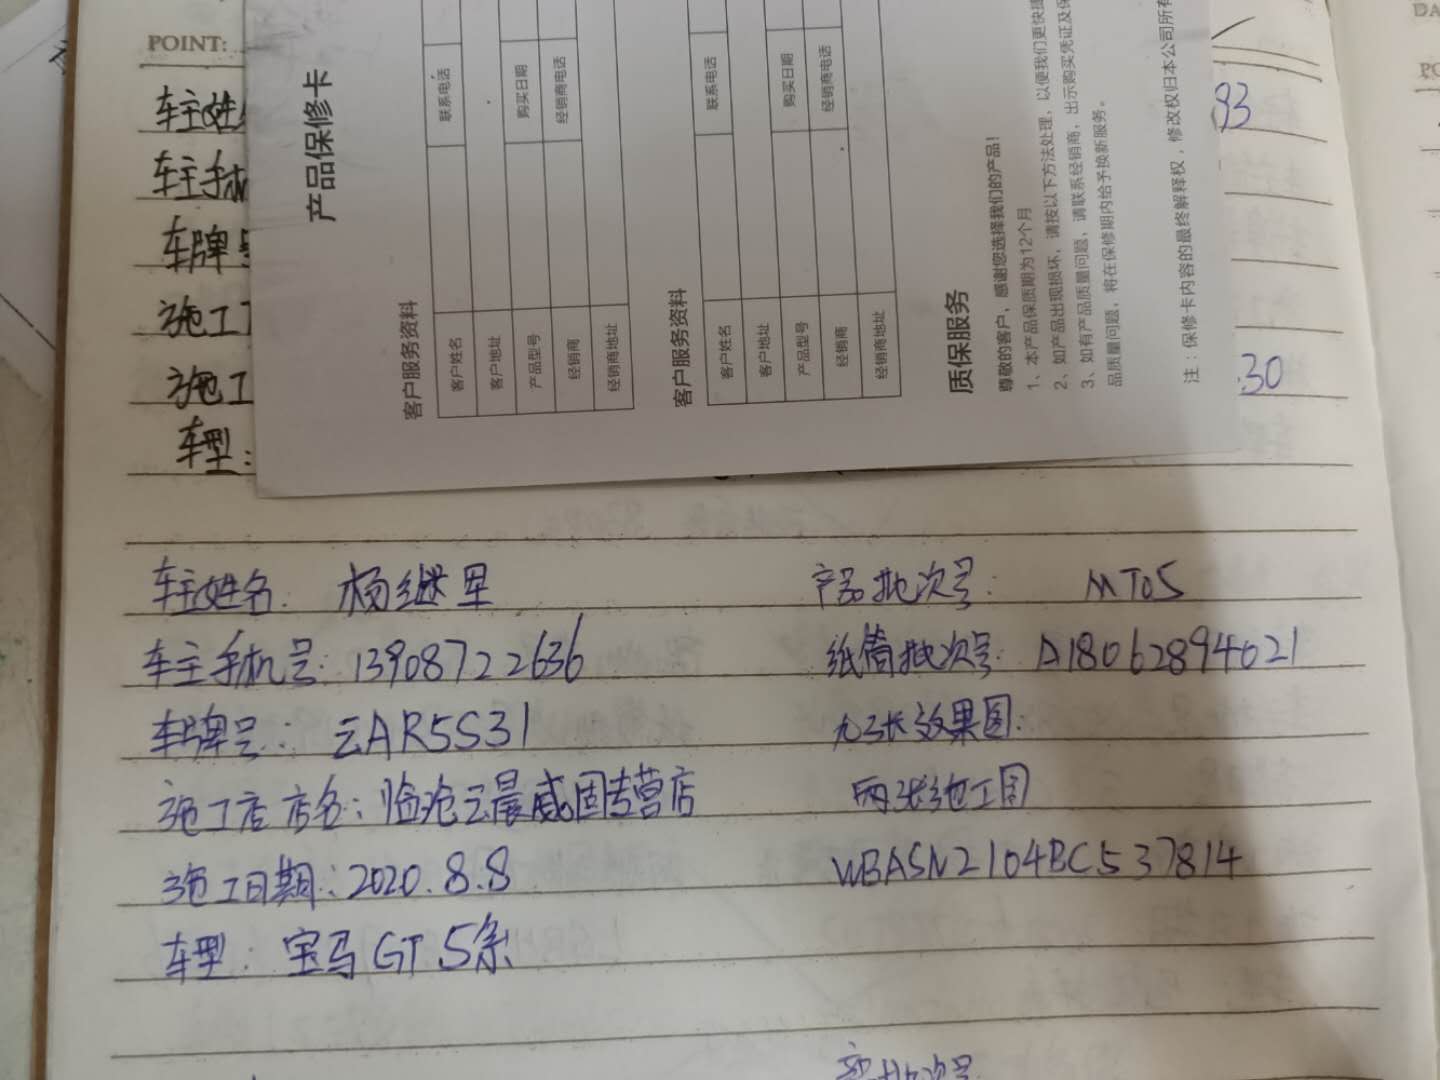 POINT:
车主姓
车主手机
车牌号
施工
施工
车型:
93
.30
产品保修卡
客户服务资料
客户姓名 联系电话
客户地址
产品型号 购买日期
经销商 经销商电话
经销商地址
客户服务资料
客户姓名 联系电话
客户地址
产品型号 购买日期
经销商 经销商电话
经销商地址
质保服务
尊敬的客户，感谢您选择我们的产品！
1、本产品保质期为12个月
2、如产品出现损坏，请按以下方法处理，以便我们更快捷
3、如有产品质量问题，请联系经销商，出示购买凭证及保
品质量问题，将在保修期内给予换新服务。
注：保修卡内容的最终解释权，修改权归本公司所有
车主姓名: 杨继里 产品批次号: MT05
车主手机号: 13908722636 纸筒批次号: A18062894021
车牌号: 云AR5S31 九张效果图:
施工店店名: 临沧云晨威固专营店 两张施工图
施工日期: 2020.8.8 WBASN2104BC537814
车型: 宝马GT 5系
产品批次号
DA
PO